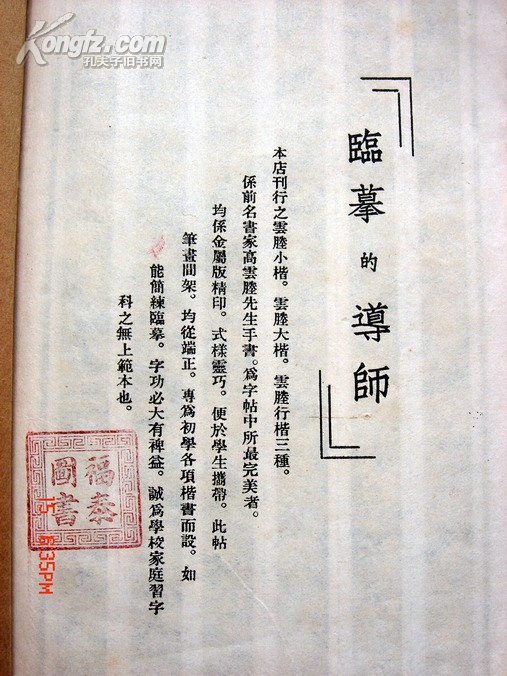 Kongfz.com
孔夫子旧书网
臨摹的導師
本店刊行之雲塍小楷。雲塍大楷。雲塍行楷三種。
係前名書家高雲塍先生手書。爲字帖中所最完美者。
均係金屬版精印。式樣靈巧。便於學生攜帶。此帖
筆畫間架。均從端正。專爲初學各項楷書而設。如
能簡練臨摹。字功必大有裨益。誠爲學校家庭習字
科之無上範本也。
福泰
圖書
15 6:35PM